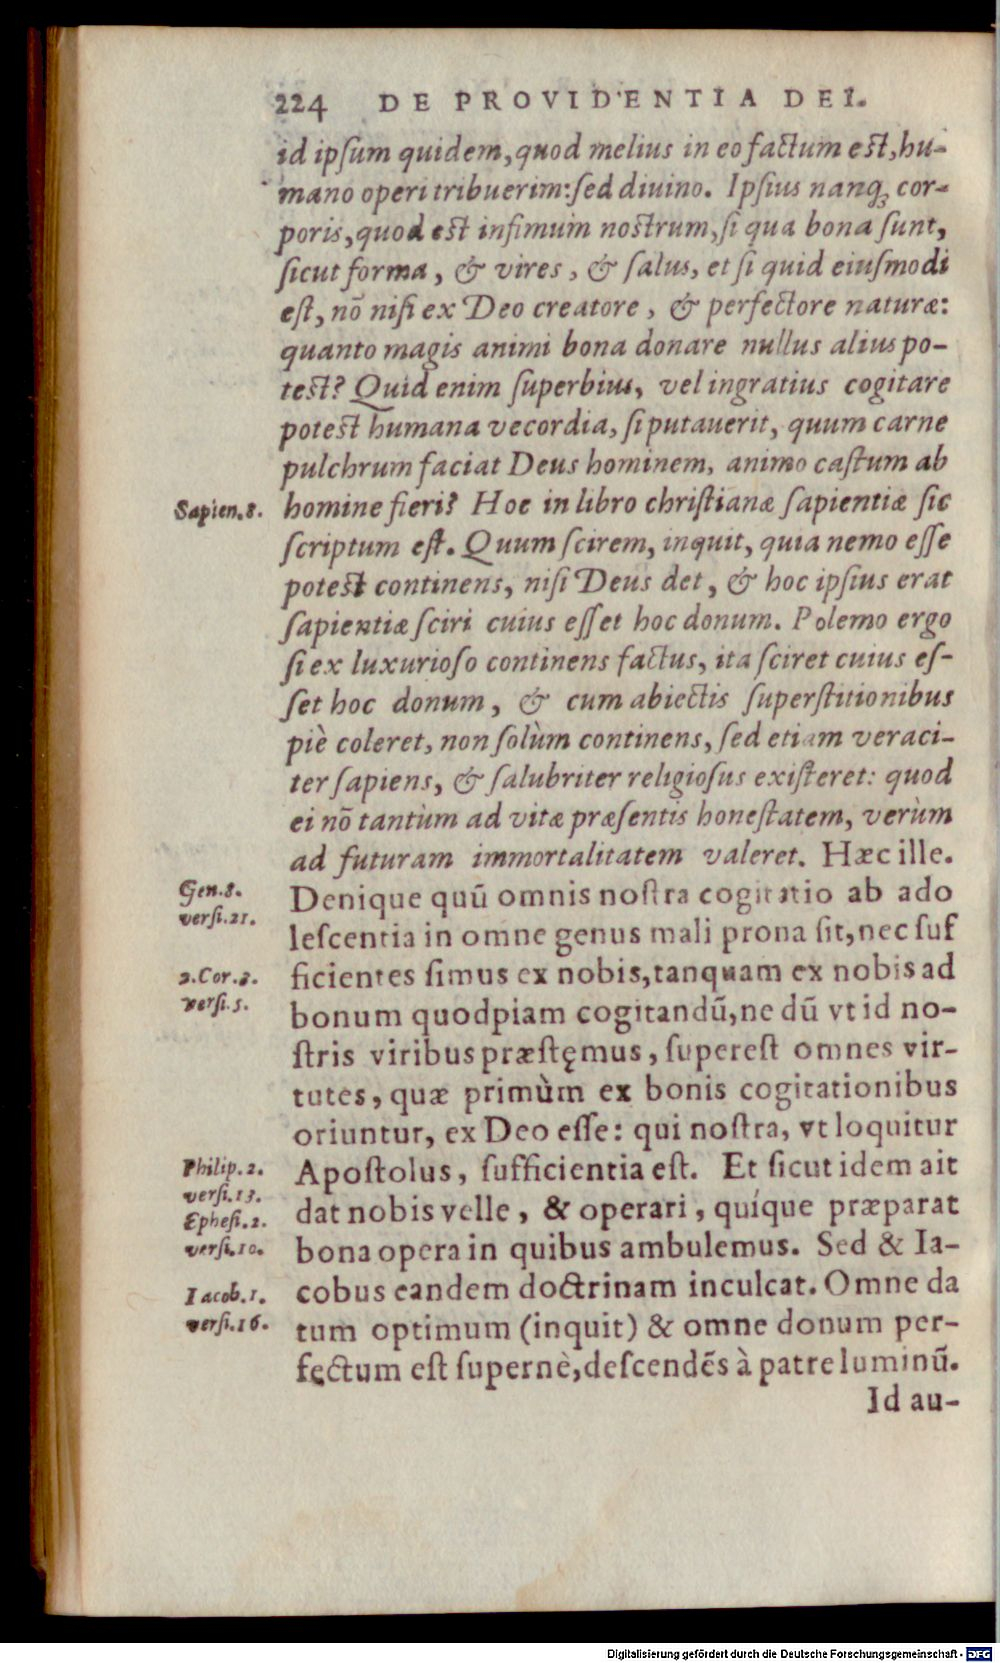 224 DE PROVIDENTIA DEI.
id ipſum quidem, quod melius in eo factum eſt, hu-
mano operi tribuerim: ſed diuino. Ipſius nanqꝫ cor-
poris, quod eſt infimum noſtrum, ſi qua bona ſunt,
ſicut forma, & vires, & ſalus, et ſi quid eiuſmodi
eſt, nõ niſi ex Deo creatore, & perfectore naturæ:
quanto magis animi bona donare nullus alius po-
teſt? Quid enim ſuperbius, vel ingratius cogitare
poteſt humana vecordia, ſi putauerit, quum carne
pulchrum faciat Deus hominem, animo caſtum ab
Sapien.8.
homine fieri? Hoc in libro chriſtianæ ſapientiæ ſic
ſcriptum eſt. Quum ſcirem, inquit, quia nemo eſſe
poteſt continens, niſi Deus det, & hoc ipſius erat
ſapientiæ ſciri cuius eſſet hoc donum. Polemo ergo
ſi ex luxurioſo continens factus, ita ſciret cuius eſ-
ſet hoc donum, & cum abiectis ſuperſtitionibus
piè coleret, non ſolùm continens, ſed etiam veraci-
ter ſapiens, & ſalubriter religioſus exiſteret: quod
ei nõ tantùm ad vitæ præſentis honeſtatem, verùm
ad futuram immortalitatem valeret. Hæc ille.
Gen.8.
verſi.21.
Denique quũ omnis noſtra cogitatio ab ado
leſcentia in omne genus mali prona ſit, nec ſuf
2.Cor.3.
verſi.5.
ficientes ſimus ex nobis, tanquam ex nobis ad
bonum quodpiam cogitandũ, ne dũ vt id no-
ſtris viribus præſtęmus, ſupereſt omnes vir-
tutes, quæ primùm ex bonis cogitationibus
oriuntur, ex Deo eſſe: qui noſtra, vt loquitur
Philip.2.
verſi.13.
Epheſi.2.
verſi.10.
Apoſtolus, ſufficientia eſt. Et ſicut idem ait
dat nobis velle, & operari, quíque præparat
bona opera in quibus ambulemus. Sed & Ia-
Iacob.1.
verſi.16.
cobus eandem doctrinam inculcat. Omne da
tum optimum (inquit) & omne donum per-
fectum eſt ſupernè, deſcendẽs à patre luminũ.
Id au-
Digitalisierung gefördert durch die Deutsche Forschungsgemeinschaft - DFG